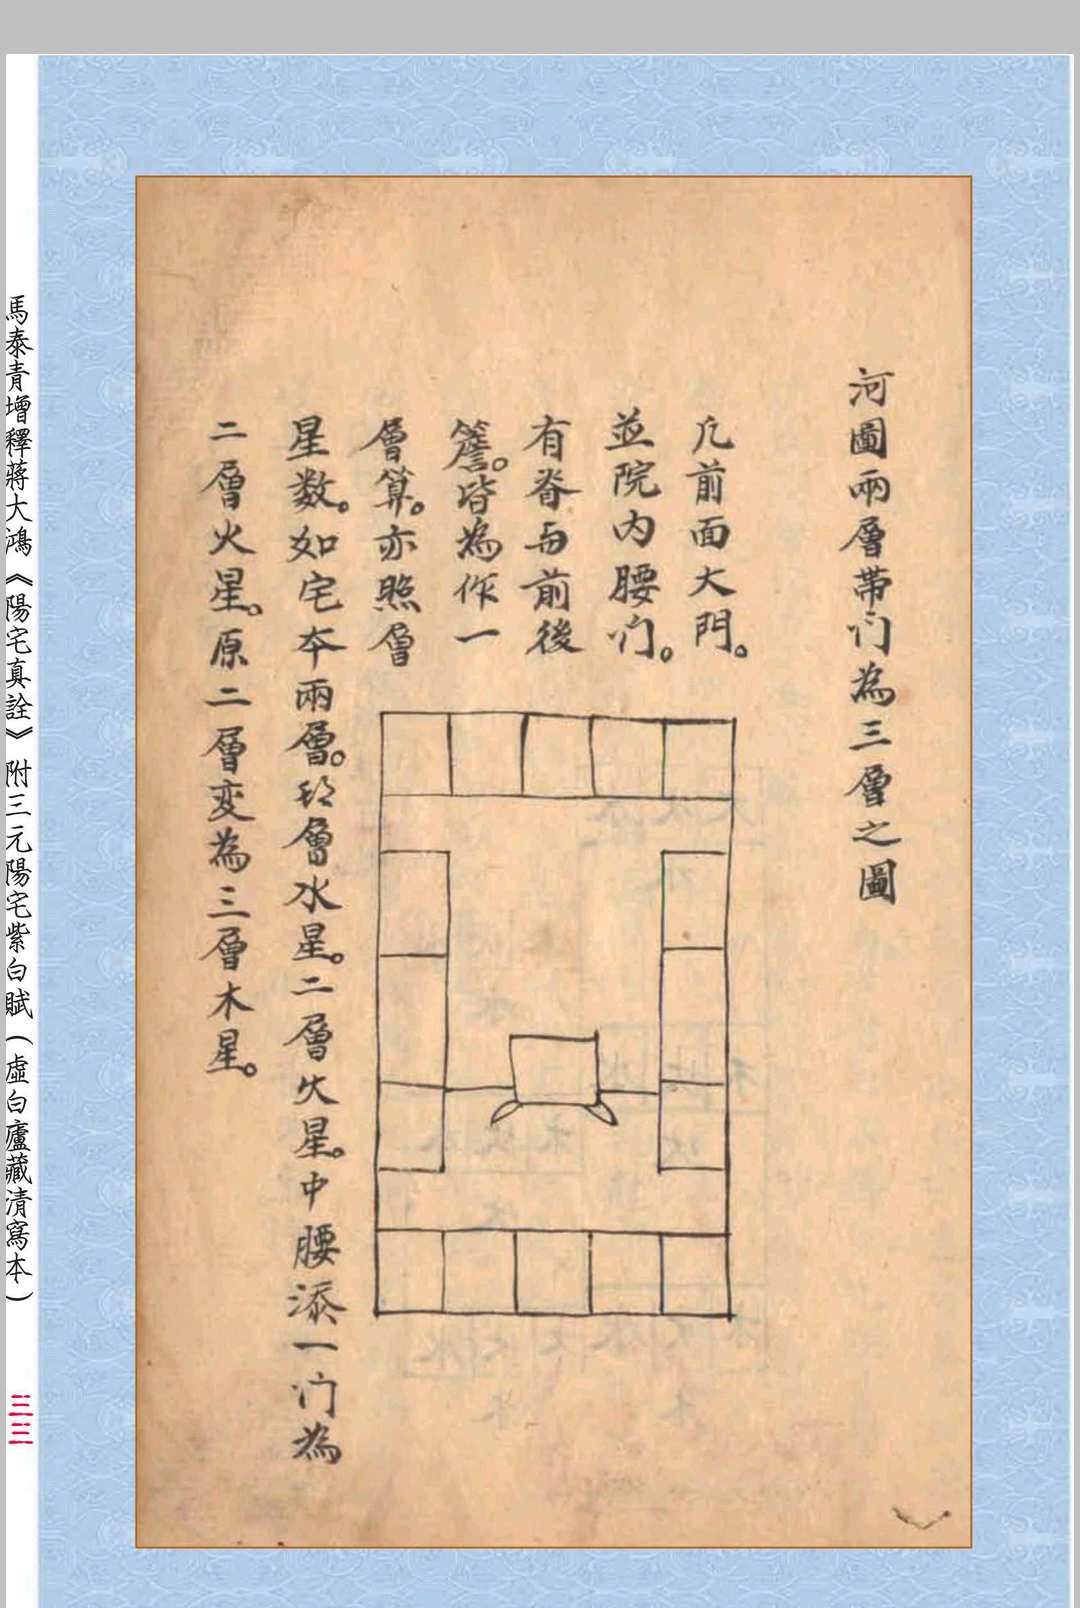 河圖兩層帶门為三層之圖
凢前面大門。
並院内腰门。
有脊与前後
簷。皆為作一
層算。亦照層
星数。如宅本兩層。頭層水星。二層火星。中腰添一门為
二層火星。原二層变為三層木星。
馬泰青增釋蔣大鴻《陽宅真詮》附三元陽宅紫白賦(虛白廬藏清寫本)
三三